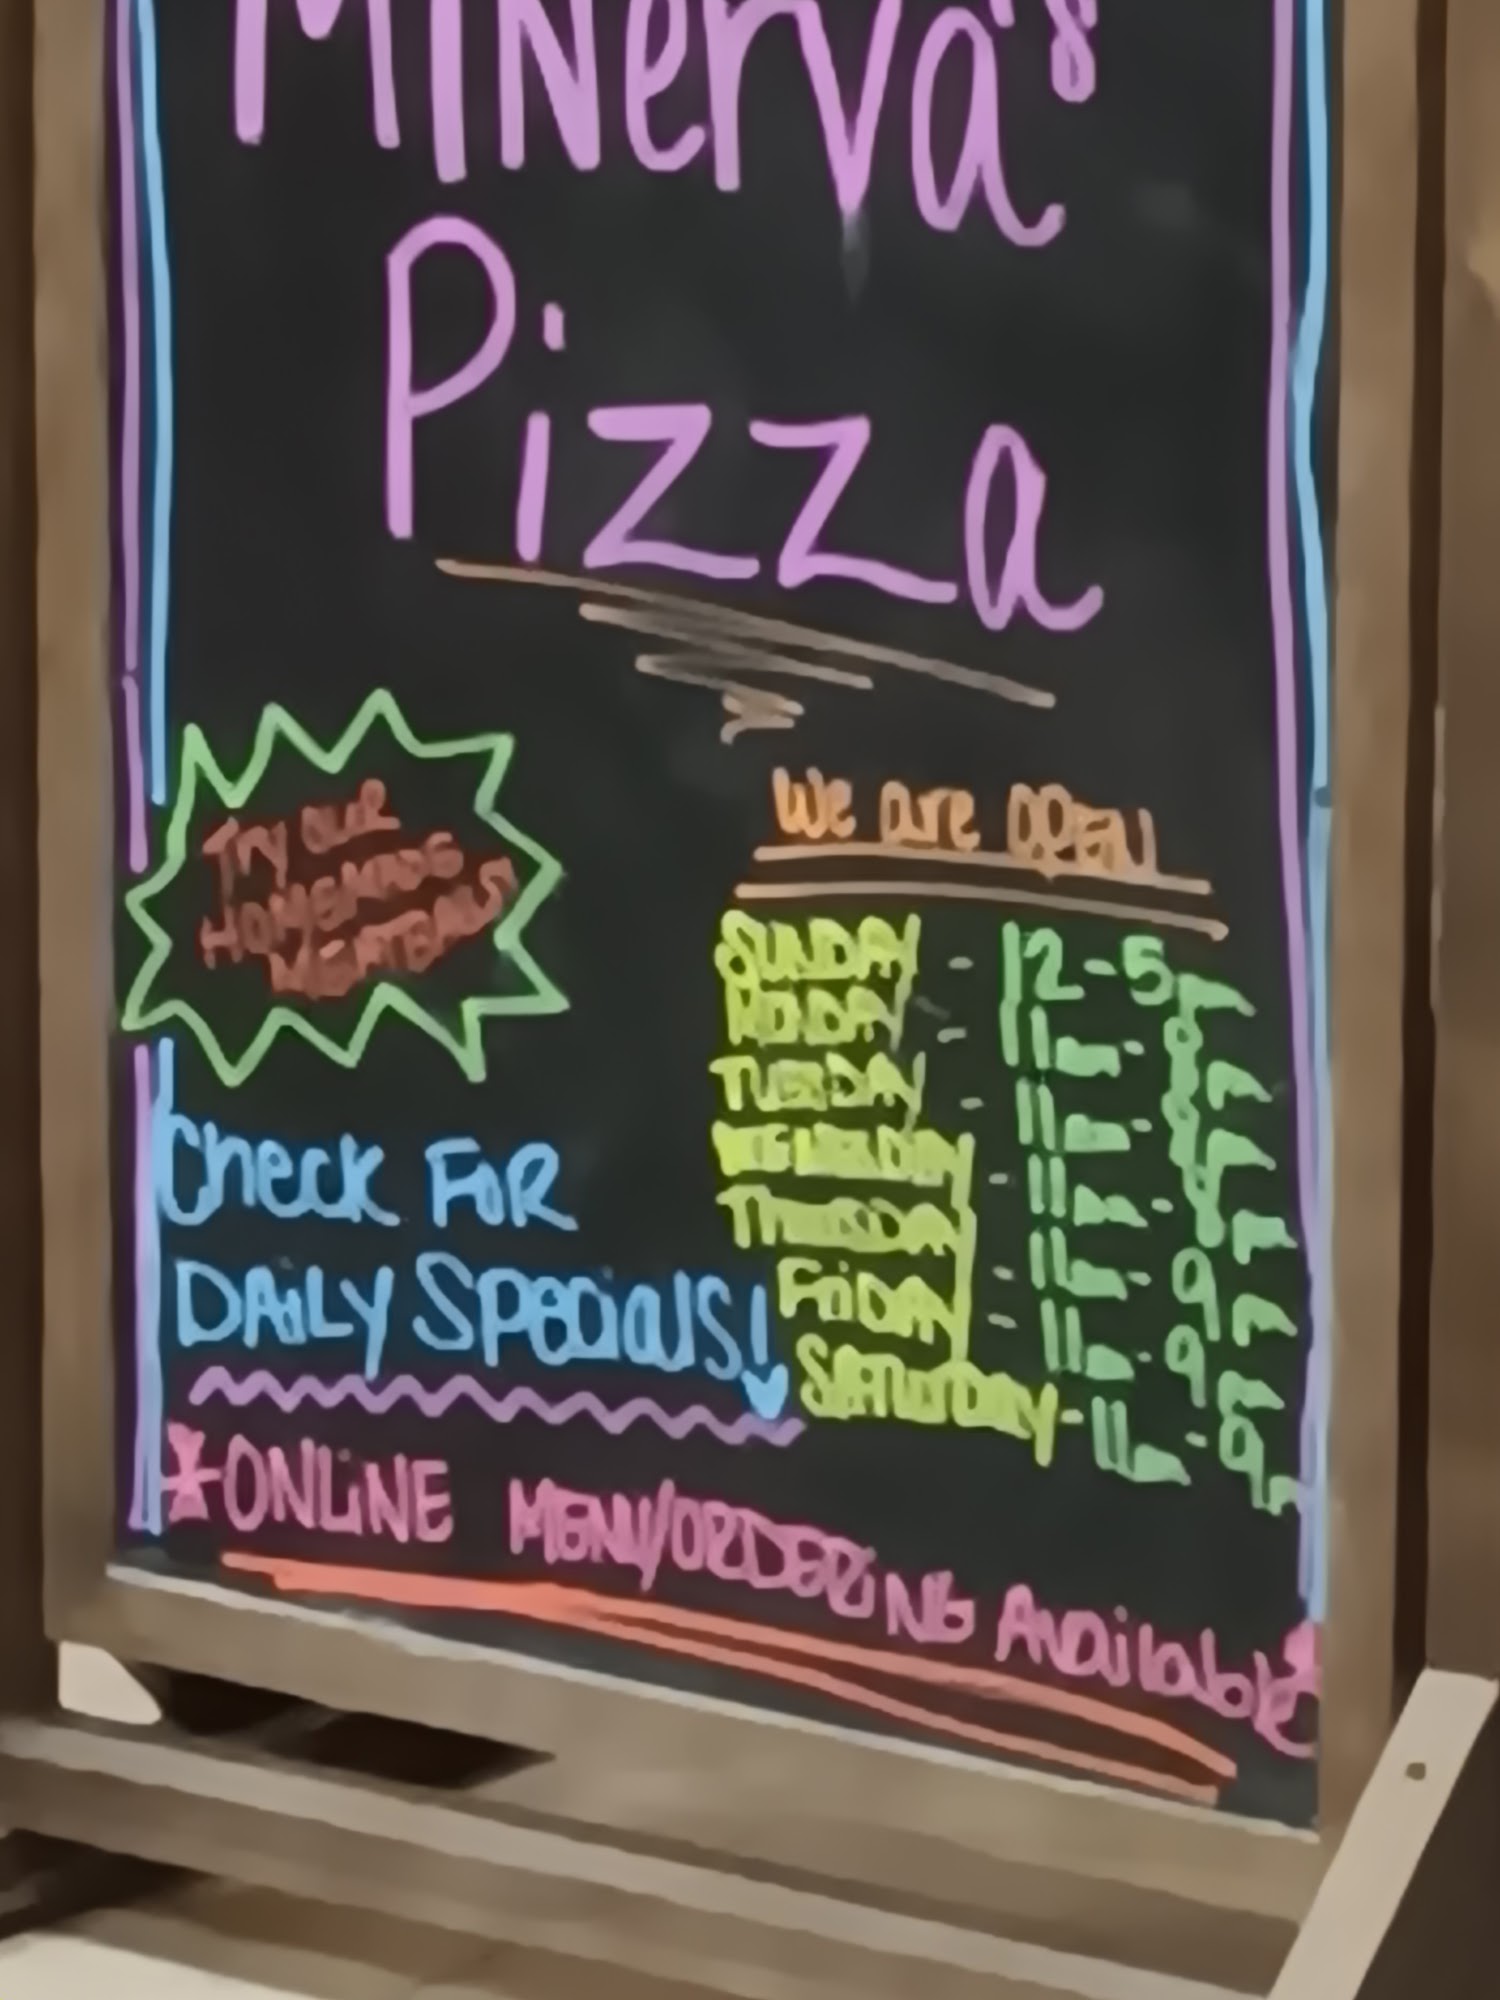 Minerva's
Pizza
Try our
HOMEMADE
MEATBALLS!
We are OPEN
SUNDAY - 12-5pm
MONDAY - 11am-8pm
TUESDAY - 11am-8pm
WEDNESDAY - 11am-8pm
THURSDAY - 11am-9pm
FRiDAY - 11am-9pm
SATURDAY - 11am-9pm
Check FOR
DAiLY Specials!
*ONLiNE MENU/ORDERiNG Available*